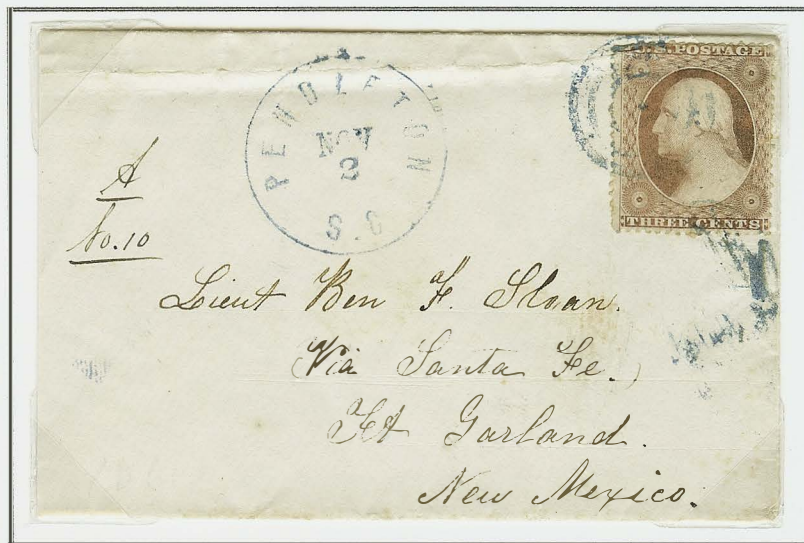 PENDLETON
NOV
2
S.C
U.S. POSTAGE
THREE CENTS
A
No. 10
Lieut Ben F. Sloan.
Via Santa Fe.
Ft Garland.
New Mexico.